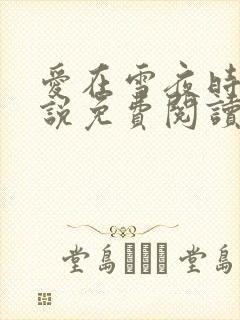 愛在雪夜時
說免費閱讀
堂島 堂島